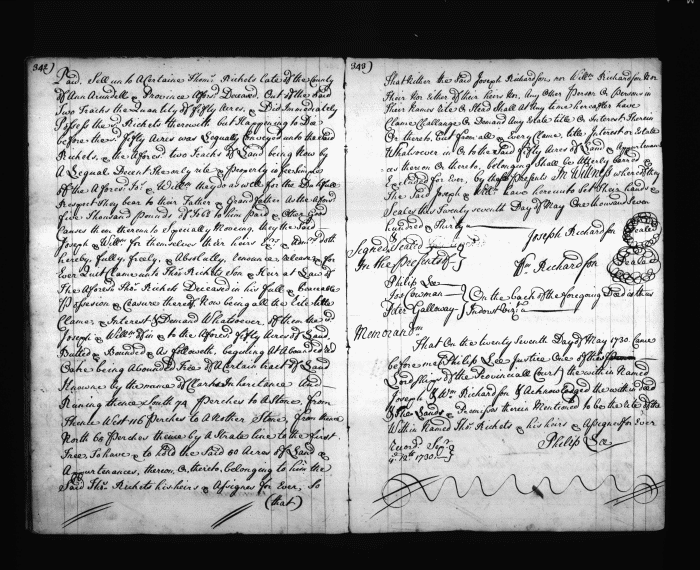 342)
Paid. Sell unto A Certaine Thoms. Richets late of the County
of Ann Arundell & Province Afores. Deceased. Out of the Said
Two Tracts the Quantity of fifty Acres, & Did Immediately
Possess the Richets therewith but Happening to Die
before the fifty Acres was Legually Conveyed unto the said
Richets, & the Afores. two Tracts of Land being Now by
A Legual Decent the only & Property in feesimple
of the Afores. Jos. & Willm. they do as well for the Dutifull
Respect they bear to their Father & Grandfather As the Afores.
five Thousand Pounds of tob to him Paid & Other Good
Causes them thereunto Specially Moveing, they the Said
Joseph & Willm. for themselves their heirs both
hereby, fully, freely, & Absolutly, remise release & for
Ever Quit Claim unto Thos. Richets Son & Heir at Law of
The Aforesd. Thos. Richets Deceased in his full &
Possession & thereof Now being all the Rite title
Claime, & Interest & Demand Whatsoever, of them the sd.
Joseph & Willm. of in & to the Afores. fifty Acres of Land
Butted & Bounded As followeth, begining At A bounded
Oake being A bounded Tree of A Certain tract of Land
Knowne by the name of Inheritance And
Runing thence South 74 Perches to A Stone, from
Thence West 116 Perches to Another Stone, from thence
North 60 Perches thence by A Strate line to the first
Tree, To have & to hold the Said 50 Acres of Land &
Appurtenances, therein, Or thereto, belonging to him the
Said Thos. Richets his heirs & Assignes for Ever, So
(that)
343)
That Nither the Said Joseph Richardson, nor Willm. Richardson Nor
Their Nor Either of their heirs Nor, Any Other Person Or Persons in
Their Names Rite Or Stead Shall At Any time hereafter have
Clame Challange Or Demand Any Estate title Or Interest Therein
Or thereto, but from all & Every Clame, title Interest or Estate
Whatsoever in Or to the Said fifty Acres of Land & Appurtenances
As therein Or thereto, belonging Shall be Utterly bared &
Excluded for Ever, by these Presents In Witness whereof they
The Said Joseph & Willm. have hereunto Set their hands &
Seales this Twenty Seventh Day of May One thousand Seven
hundred & Thirty
Joseph Richardson Seale
Signed Seald
In the Presents of
Wm. Richardson Seale
Philip Lee
Jos Cowman
Peter Galloway
On the back of the foregoing Deed as thus
Indorst Viz.
Memorandm.
That On the twenty Seventh Day of May 1730. Came
before me Philip Lee Justice One of the
Lordships of the Provinciall Court, the within Named
Joseph & Wm. Richardson & Acknowledged the within Deed
& the Lands & Premises therein Mentioned to be the Rite of the
Within Named Thos. Richets & his heirs & Assignes for Ever
Philip Lee
Record. Sepr.
12th 1730